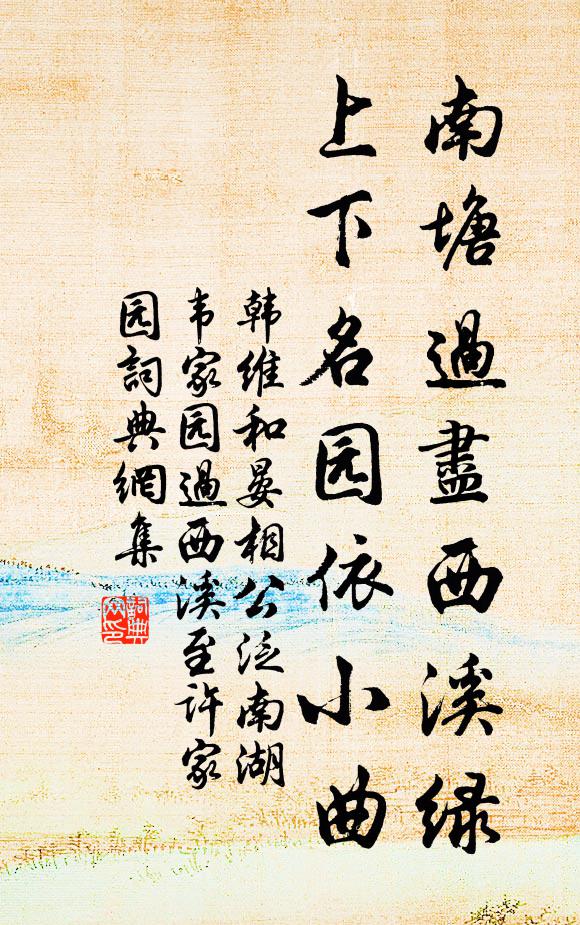 南塘過盡西溪绿
上下名园依小曲
韩维和晏相公泛南湖
韦家园過西溪至许家
园詞典網集
詞典網印